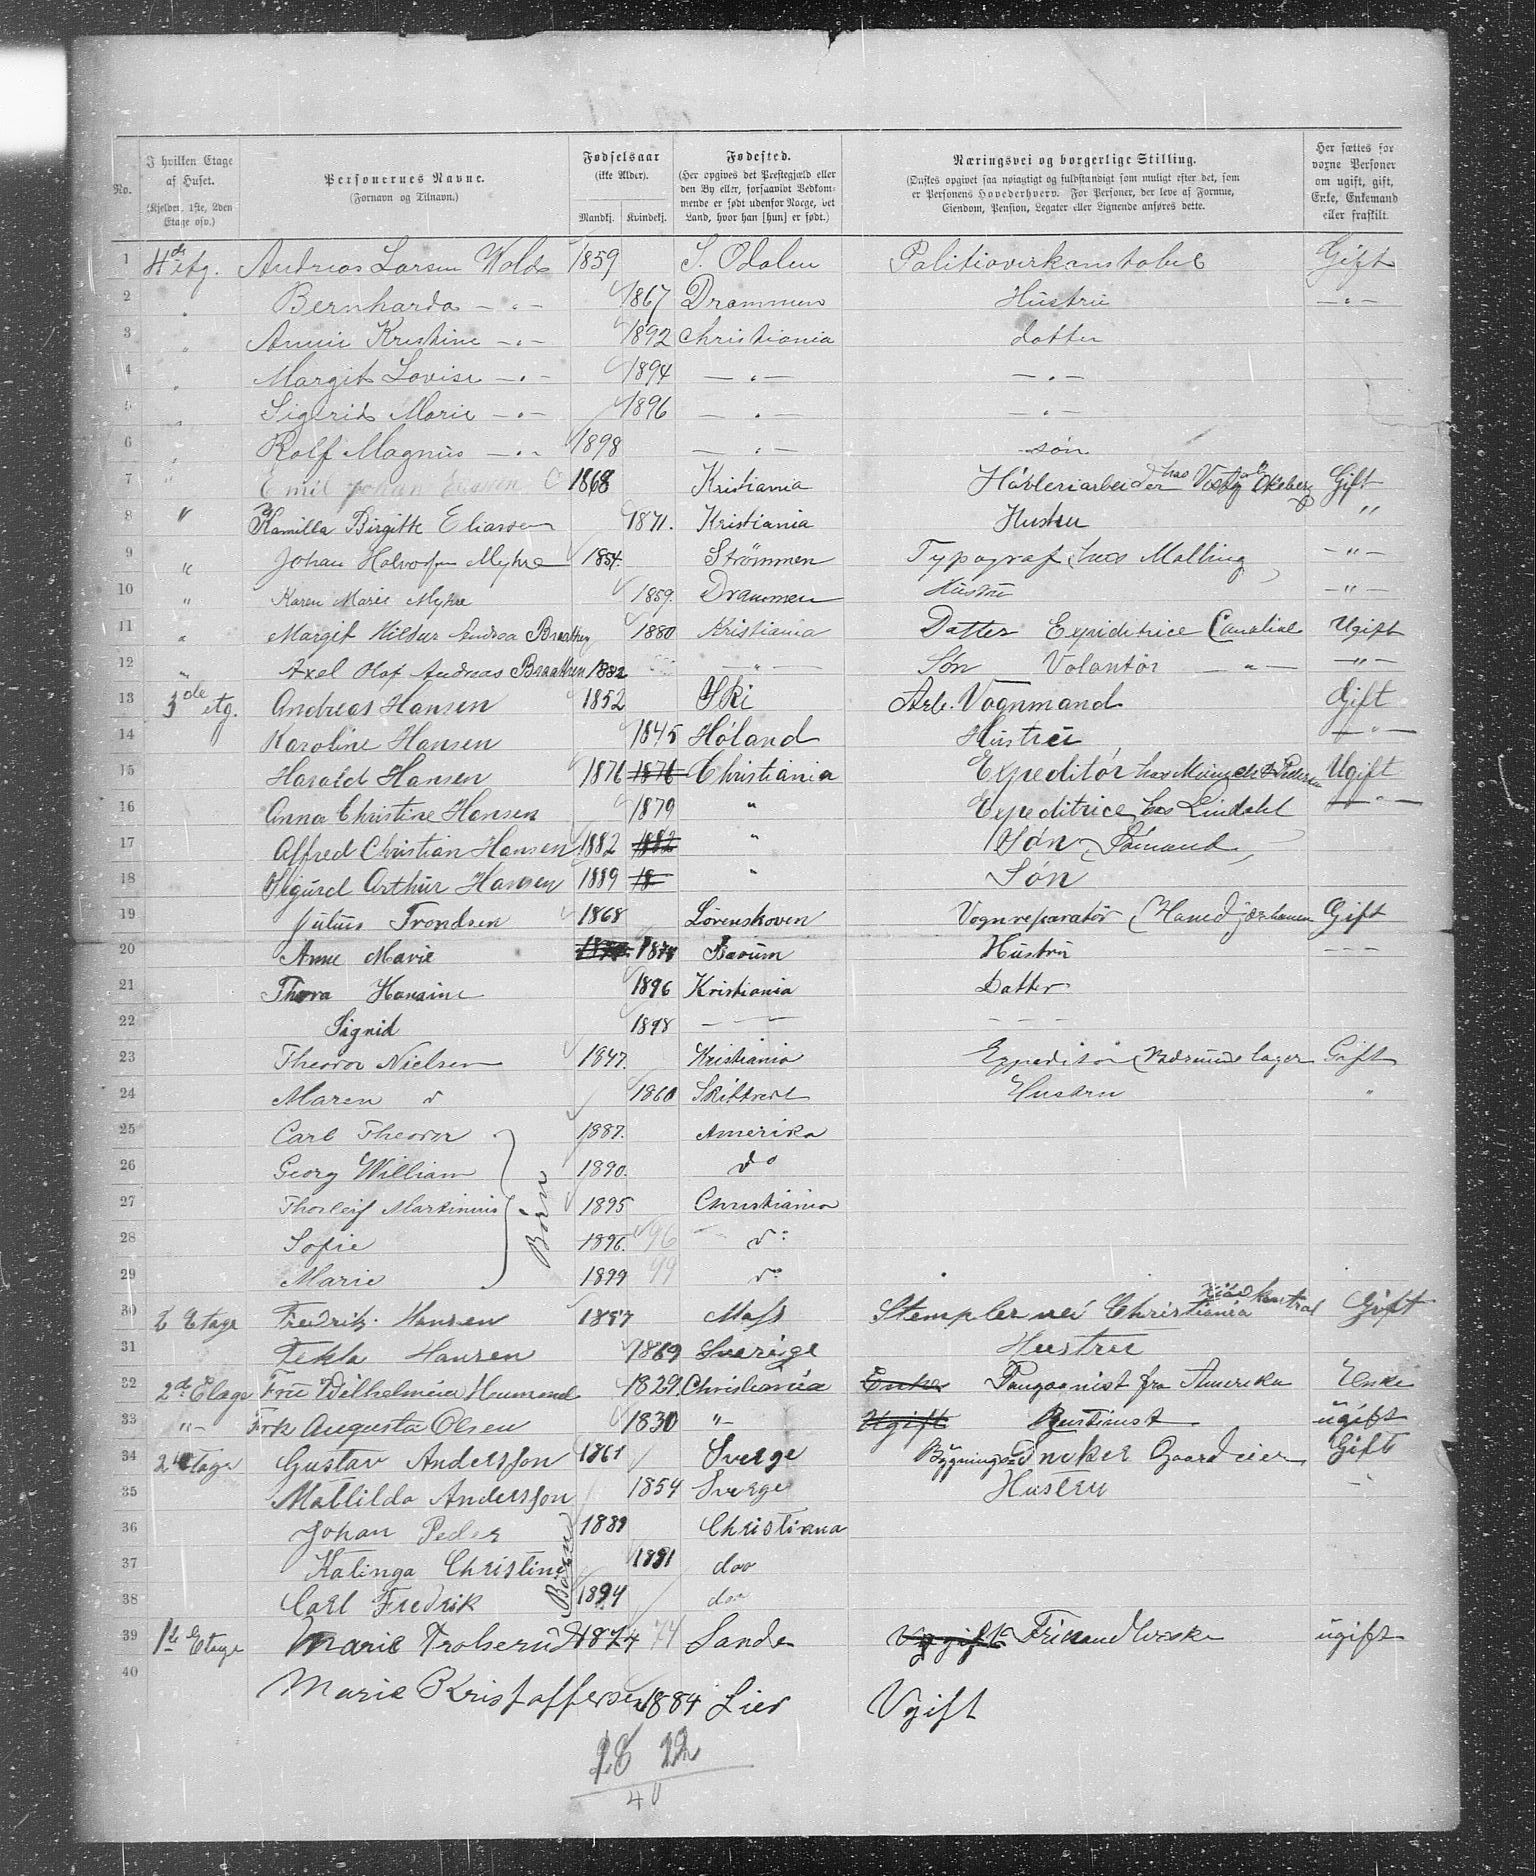 No. I hvilken Etage af Huset. (Kjelder, 1ste, 2den Etage osv.) Personernes Navne. (Fornavn og Tilnavn.) Fødselsaar (ikke Alder). Mandkj. Kvindekj. Fødested. (Her opgives det Prestegjæld eller den By eller, forsaavidt Vedkommende er født udenfor Norge, det Land, hvor han [hun] er født.) Næringsvei og borgerlige Stilling. (Ønskes opgivet saa nøiagtigt og fuldstændigt som muligt efter det, som er Personens Hovederhverv. For Personer, der leve af Formue, Eiendom, Pension, Legater eller Lignende anføres dette. Her sættes for voxne Personer om ugift, gift, Enke, Enkemand eller fraskilt.
1 4de etg. Andreas Larsen Wold 1859 S. Odalen Politioverkonstabel Gift
2 " Bernharda — " — 1867 Drammen Hustru — " —
3 " Anni Kristine — " — 1892 Christiania datter
4 " Margit Lovise — " — 1894 — " — — " —
5 " Sigrid Marie — " — 1896 — " — — " —
6 " Rolf Magnus — " — 1898 — " — søn
7 " Emil Johan 1868 Kristiania Høvleriarbeider hos Gift
8 " Kamilla Birgitte Eliassen 1871. Kristiania Hustru "
9 " Johan Halvorsen Myhre 1854. Strømmen Typograf hos Malling — " —
10 " Karen Marie Myhre 1859. Drammen Hustru — " —
11 " Margit Hildur Andrea Braathen 1880 Kristiania Datter Expeditrice Ugift
12 " Axel Olaf Andreas Braathen 1882 — " — Søn Volantør — " — — " —
13 3de etg. Andreas Hansen 1852 Ski Arb. Vognmand Gift
14 Karoline Hansen 1845 Høland Hustru — " —
15 Harald Hansen 1876 1876 Christiania Expeditør hos Ugift
16 Anna Christine Hansen 1879 " Expeditrice hos Lindahl — " —
17 Alfred Christian Hansen 1882 1882 " Søn Sømand
18 Sigurd Arthur Hansen 1889 18 " Søn
19 Julius Trondsen 1868 Lørenskoven Vognreparatør Gift
20 Anne Marie Bærum Hustru - - -
21 Thora Hansine 1896 Kristiania Datter
22 Signid 1898 — — — - - -
23 Theodor Nielsen 1847. Kristiania Expeditør lager Gift
24 Maren d 1860 Skiptvedt Hustru "
25 Carl Theodor 1887. Amerika
26 Georg William 1890. do
27 Thorleif Martinius Børn 1895 Christiania
28 Sofie 1896. 96 do
29 Marie 1899 99 do
30 2 Etage Fredrik Hansen Moss Stempler ved Christiania Gift
31 Tekla Hansen 1869 Sverige Hustru
32 2de Etage Fru Wilhelmine 1829. Christiania Enke fra Amerika Enke
33 " - Frk Augusta Olsen 1830 " - Ugift ugift
34 2 Etage Gustav Andersson 1861 Sverge Bygnings Snekker Gaardeier Gift
35 Mathilda Andersson 1854 Sverge Hustru "
36 Johan Peder 1889 Christiana
37 Katinga Christine Børn 1891 do
38 Carl Fredrik 1894 do
39 1ste Etage Marie 1874 74 Sande ugift
40 Marie Kristoffersen 1884 Lier Ugift
18 22
40